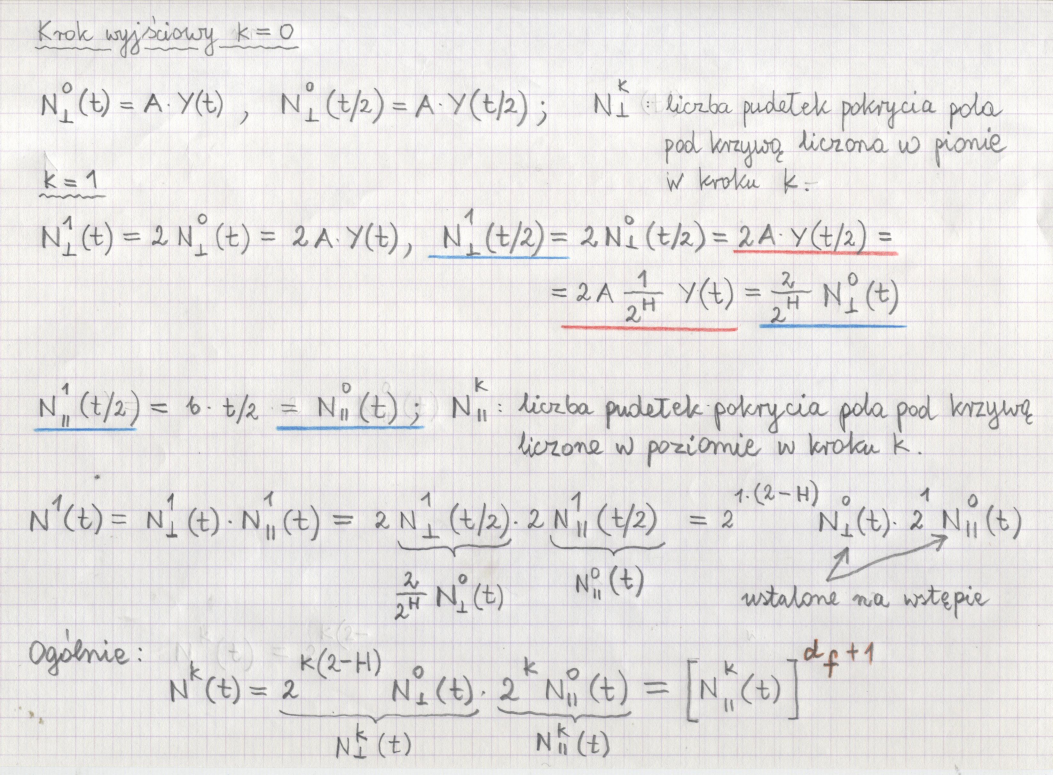 Krok wyjściowy k = 0
N⊥⁰(t) = A·Y(t), N⊥⁰(t/2) = A·Y(t/2); N⊥ᵏ : liczba pudełek pokrycia pola
pod krzywą liczona w pionie
w kroku k.
k = 1
N⊥¹(t) = 2N⊥⁰(t) = 2A·Y(t), N⊥¹(t/2) = 2N⊥⁰(t/2) = 2A·Y(t/2) =
= 2A 1/2^H Y(t) = 2/2^H N⊥⁰(t)
N||¹(t/2) = b·t/2 = N||⁰(t); N||ᵏ : liczba pudełek pokrycia pola pod krzywą
liczone w poziomie w kroku k.
N¹(t) = N⊥¹(t)·N||¹(t) = 2 N⊥¹(t/2)·2 N||¹(t/2) = 2^1·(2-H) N⊥⁰(t)·2¹ N||⁰(t)
2/2^H N⊥⁰(t) N||⁰(t) ustalone na wstępie
Ogólnie:
Nᵏ(t) = 2^k(2-H) N⊥⁰(t)·2ᵏ N||⁰(t) = [N||ᵏ(t)]^d_f+1
N⊥ᵏ(t) N||ᵏ(t)